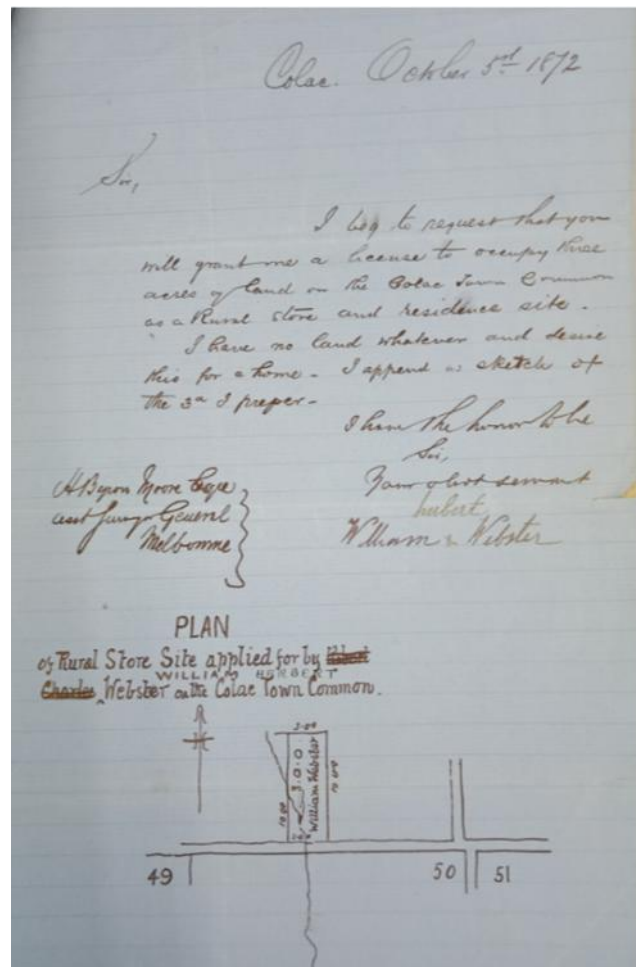 Colac. October 5rd 1872
Sir,
I beg to request that you
will grant me a license to occupy three
acres of land on the Colac Town Common
as a Rural Store and residence site.
I have no land whatever and desire
this for a home - I append a sketch of
the 3a I prefer -
I have the honor to be
Sir,
Your obdt servant
hubert
William Webster
H Byron Moore Esqre
asst Surveyor General
Melbourne
PLAN
of Rural Store Site applied for by
WILLIAM HERBERT
Charles Webster on the Colac Town Common.
3.00
10.00
3.0.0
William Webster
10.00
49
50
51